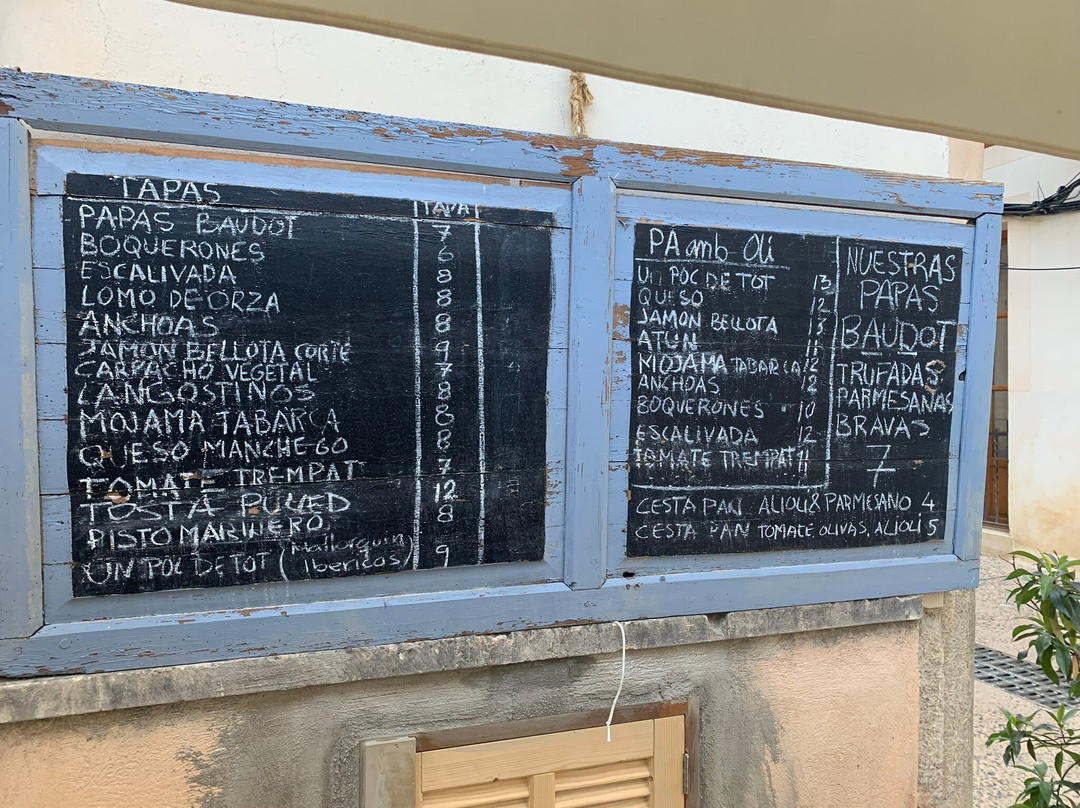 TAPAS TAPA
PAPAS BAUDOT 7
BOQUERONES 6
ESCALIVADA 8
LOMO DE ORZA 8
ANCHOAS 8
JAMON BELLOTA CORTE 9
CARPACHO VEGETAL 7
LANGOSTINOS 8
MOJAMA TABARCA 8
QUESO MANCHEGO 8
TOMATE TREMPAT 7
TOSTA PULLED 12
PISTO MARINERO 8
UN POC DE TOT (Mallorquin Ibericos) 9
PA amb Oli
UN POC DE TOT 13
QUESO 12
JAMON BELLOTA
ATUN
MOJAMA TABARCA 12
ANCHOAS 12
BOQUERONES 10
ESCALIVADA 12
TOMATE TREMPAT 11
NUESTRAS
PAPAS
BAUDOT
TRUFADAS
PARMESANAS
BRAVAS
7
CESTA PAN ALIOLI & PARMESANO 4
CESTA PAN TOMATE, OLIVAS, ALIOLI 5